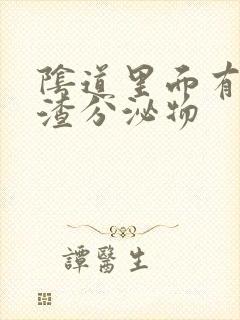 陰道里面有
渣分泌物
譚醫生